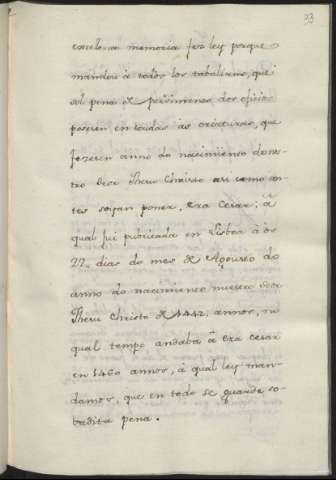 33
excelosa memoria fez ley porque
mandou à todos los tabaliaens, que
sol pena de perdimenso dos oficios
posesen en todas as escreturas, que
fezesen anno do nacimiento do nos-
tro beor Jhesu Christo asi como an-
tes soyan poner, era Cesar; à
qual fui publicada en Lisboa à os
22 dias do mes de Agousto do
anno do nacimiento nuestro beor
Jhesu Christo de 1422 annos, no
qual tempo andaba à era cesar
en 1460 annos, à qual ley man-
damos, que en todo se guarde so-
badita pena.